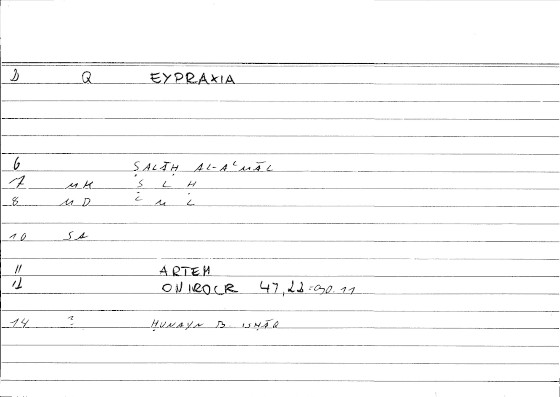 D Q EYPRAXIA
6 ṢALĀḤ AL-AʿMĀL
7 MK Ṣ L Ḥ
8 MD ʿ M L
10 SA
11 ARTEM
12 ONIROCR 47,22 = 90.11
14 ? ḤUNAYN B ISḤĀQ